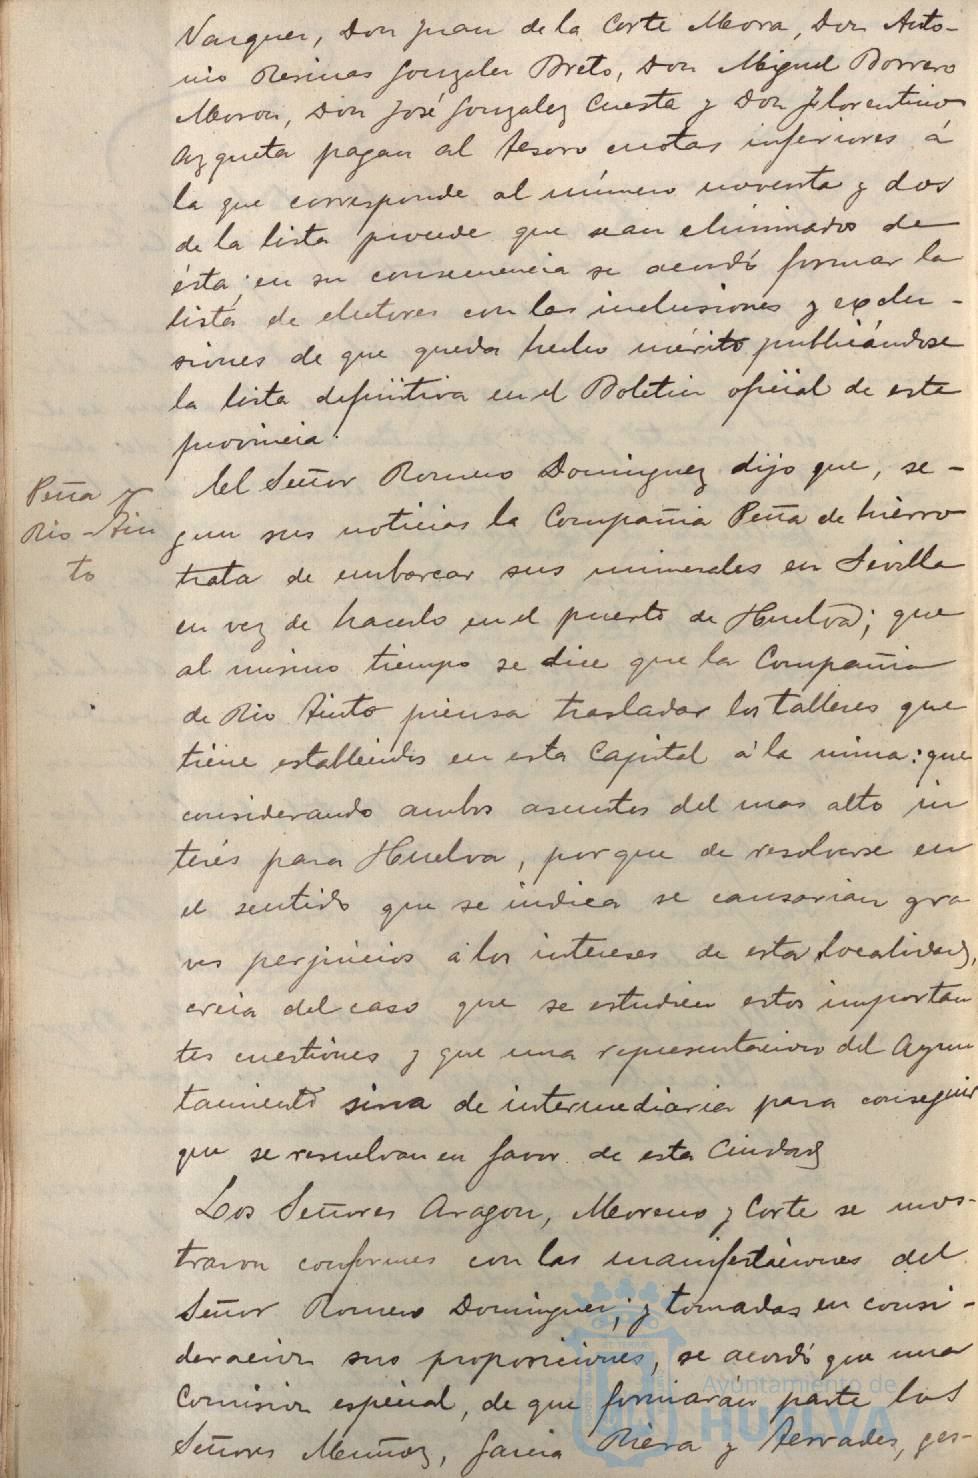 Vazquez, Don Juan de la Corte Mora, Don Anto-
nio Resinas Gonzalez Preto, Don Miguel Borrero
Moron, Don José Gonzalez Cuesta y Don Florentino
Azqueta pagan al tesoro cuotas inferiores á
la que corresponde al número noventa y dos
de la lista procede que sean eliminados de
ésta; en su consecuencia se acordó formar la
lista de electores con las inclusiones y exclu-
siones de que queda hecho mérito publicándose
la lista definitiva en el Boletin oficial de esta
provincia.
Peña y
Rio-Tin
to
El Señor Romero Dominguez dijo que, se-
gun sus noticias la Compañia Peña de hierro
trata de embarcar sus minerales en Sevilla
en vez de hacerlo en el puerto de Huelva; que
al mismo tiempo se dice que la Compañia
de Rio Tinto piensa trasladar los talleres que
tiene establecidos en esta Capital á la mina: que
considerando ambos asuntos del mas alto in
terés para Huelva, porque de resolverse en
el sentido que se indica se causarian gra
ves perjuicios á los intereses de esta localidad,
creia del caso que se estudien estos importan
tes cuestiones y que una representacion del Ayun
tamiento sirva de intermediaria para conseguir
que se resuelvan en favor de esta Ciudad
Los Señores Aragon, Moreno y Corte se mos-
traron conformes con las manifestaciones del
Señor Romero Dominguez; y tomadas en consi-
deracion sus proposiciones, se acordó que una
Comision especial, de que formarán parte los
Señores Muñoz, Garcia Riera y Terrades, ges-
Ayuntamiento de
HUELVA